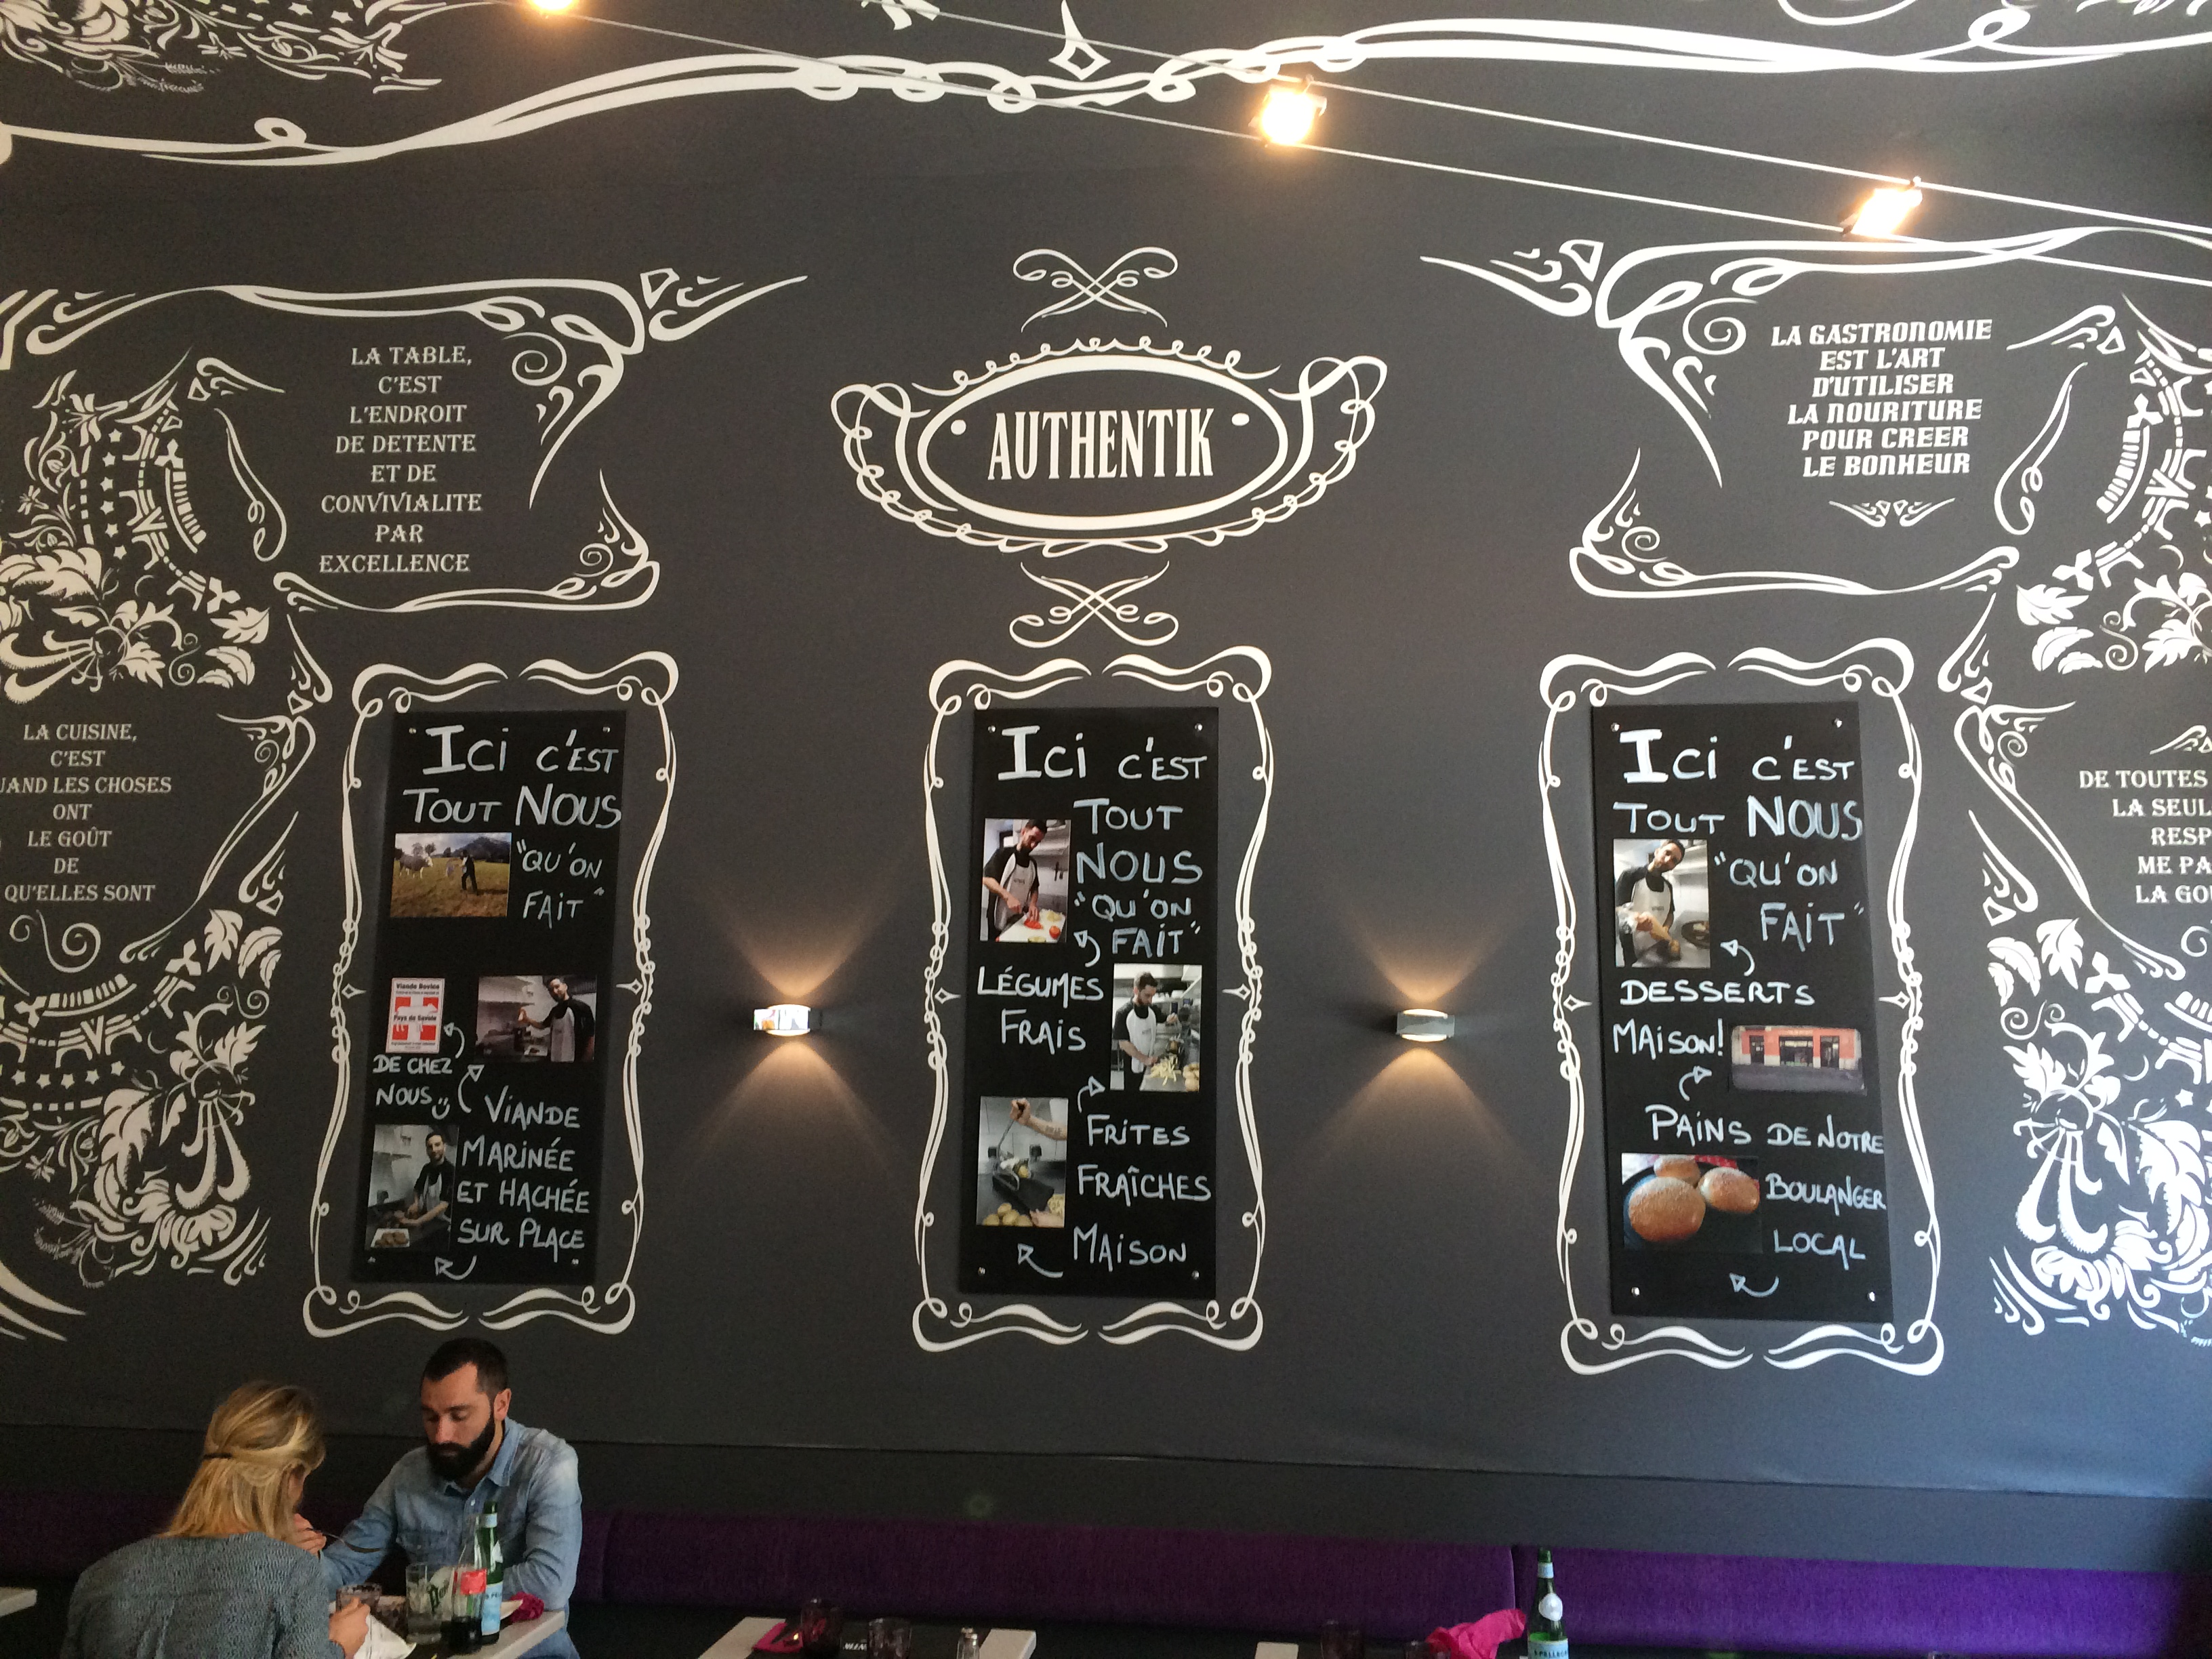 LA TABLE,
C'EST
L'ENDROIT
DE DETENTE
ET DE
CONVIVIALITE
PAR
EXCELLENCE
AUTHENTIK
LA GASTRONOMIE
EST L'ART
D'UTILISER
LA NOURITURE
POUR CREER
LE BONHEUR
LA CUISINE,
C'EST
LES CHOSES
ONT
LE GOÛT
DE
QU'ELLES SONT
ICI C'EST
TOUT NOUS
"QU'ON
FAIT"
Viande Bovine
Pays de Savoie
DE CHEZ
NOUS
VIANDE
MARINÉE
ET HACHÉE
SUR PLACE
ICI C'EST
TOUT
NOUS
"QU'ON
FAIT"
LÉGUMES
FRAIS
FRITES
FRAÎCHES
MAISON
ICI C'EST
TOUT NOUS
"QU'ON
FAIT"
DESSERTS
MAISON!
PAINS DE NOTRE
BOULANGER
LOCAL
DE TOUTES
LA
ME
LA